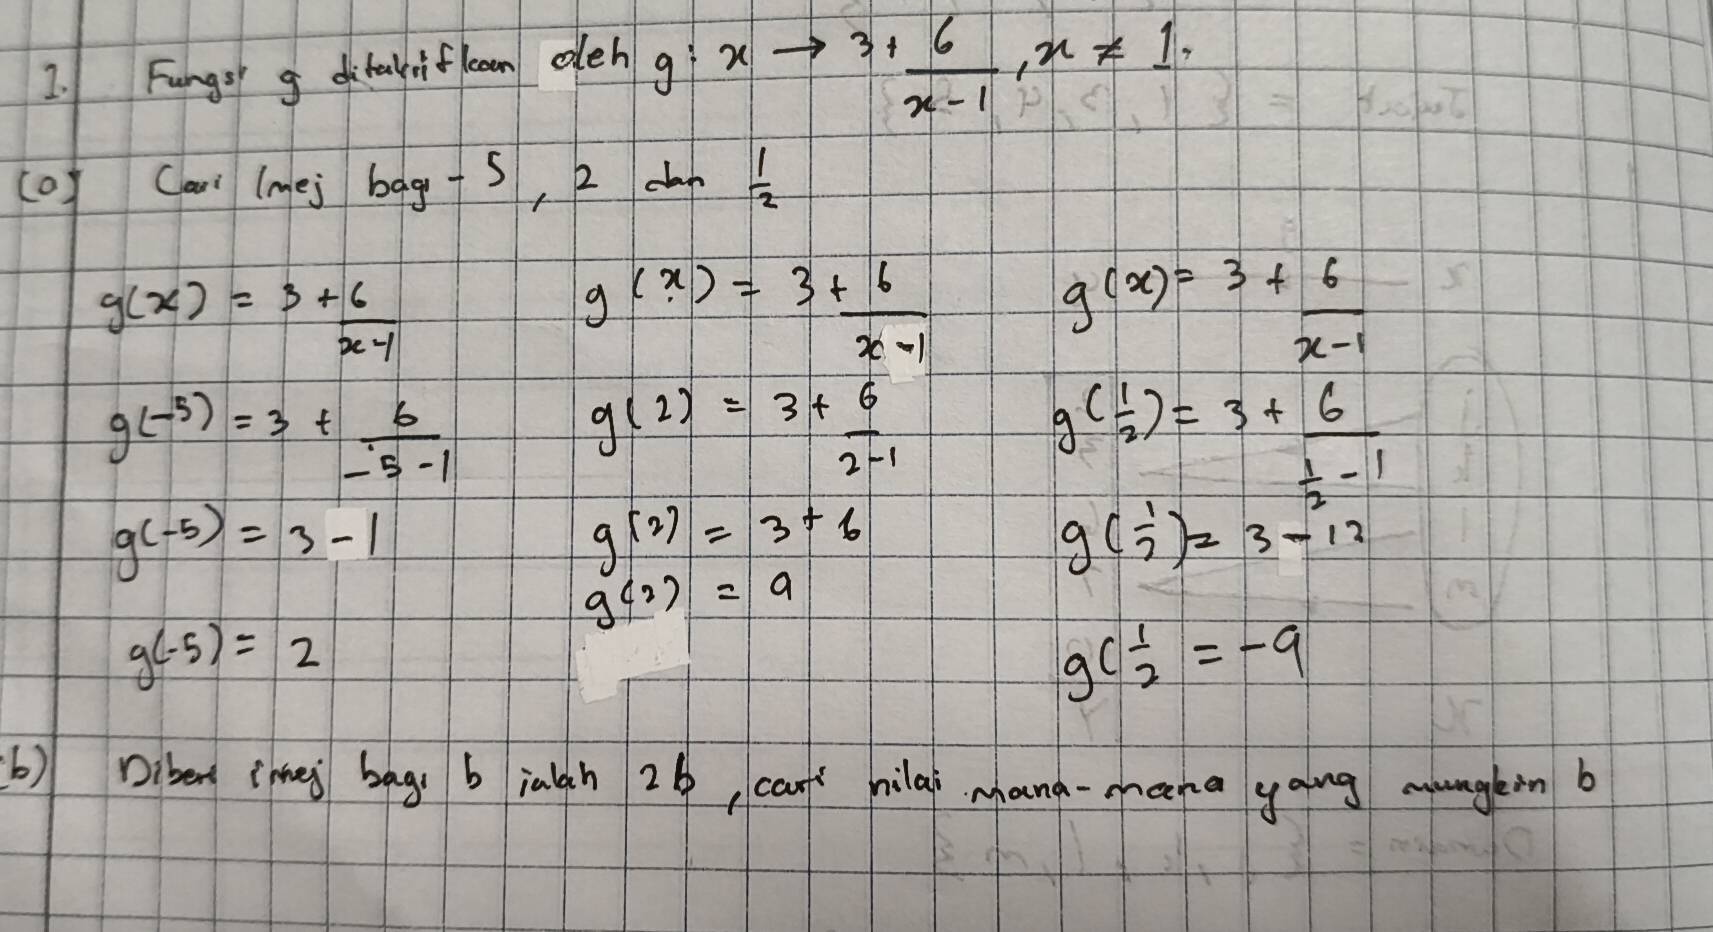 1. Fungsi g ditakrifkan oleh g : x → 3 + 6/(x-1), x ≠ 1.
(a) Cari Imej bagi - 5, 2 dan 1/2
g(x) = 3 + 6/(x-1)
g(-5) = 3 + 6/(-5-1)
g(-5) = 3 - 1
g(-5) = 2
g(x) = 3 + 6/(x-1)
g(2) = 3 + 6/(2-1)
g(2) = 3 + 6
g(2) = 9
g(x) = 3 + 6/(x-1)
g(1/2) = 3 + 6/(1/2-1)
g(1/2) = 3 - 12
g(1/2 = -9
b) Diberi imej bagi b ialah 2b, cari nilai mana-mana yang mungkin b